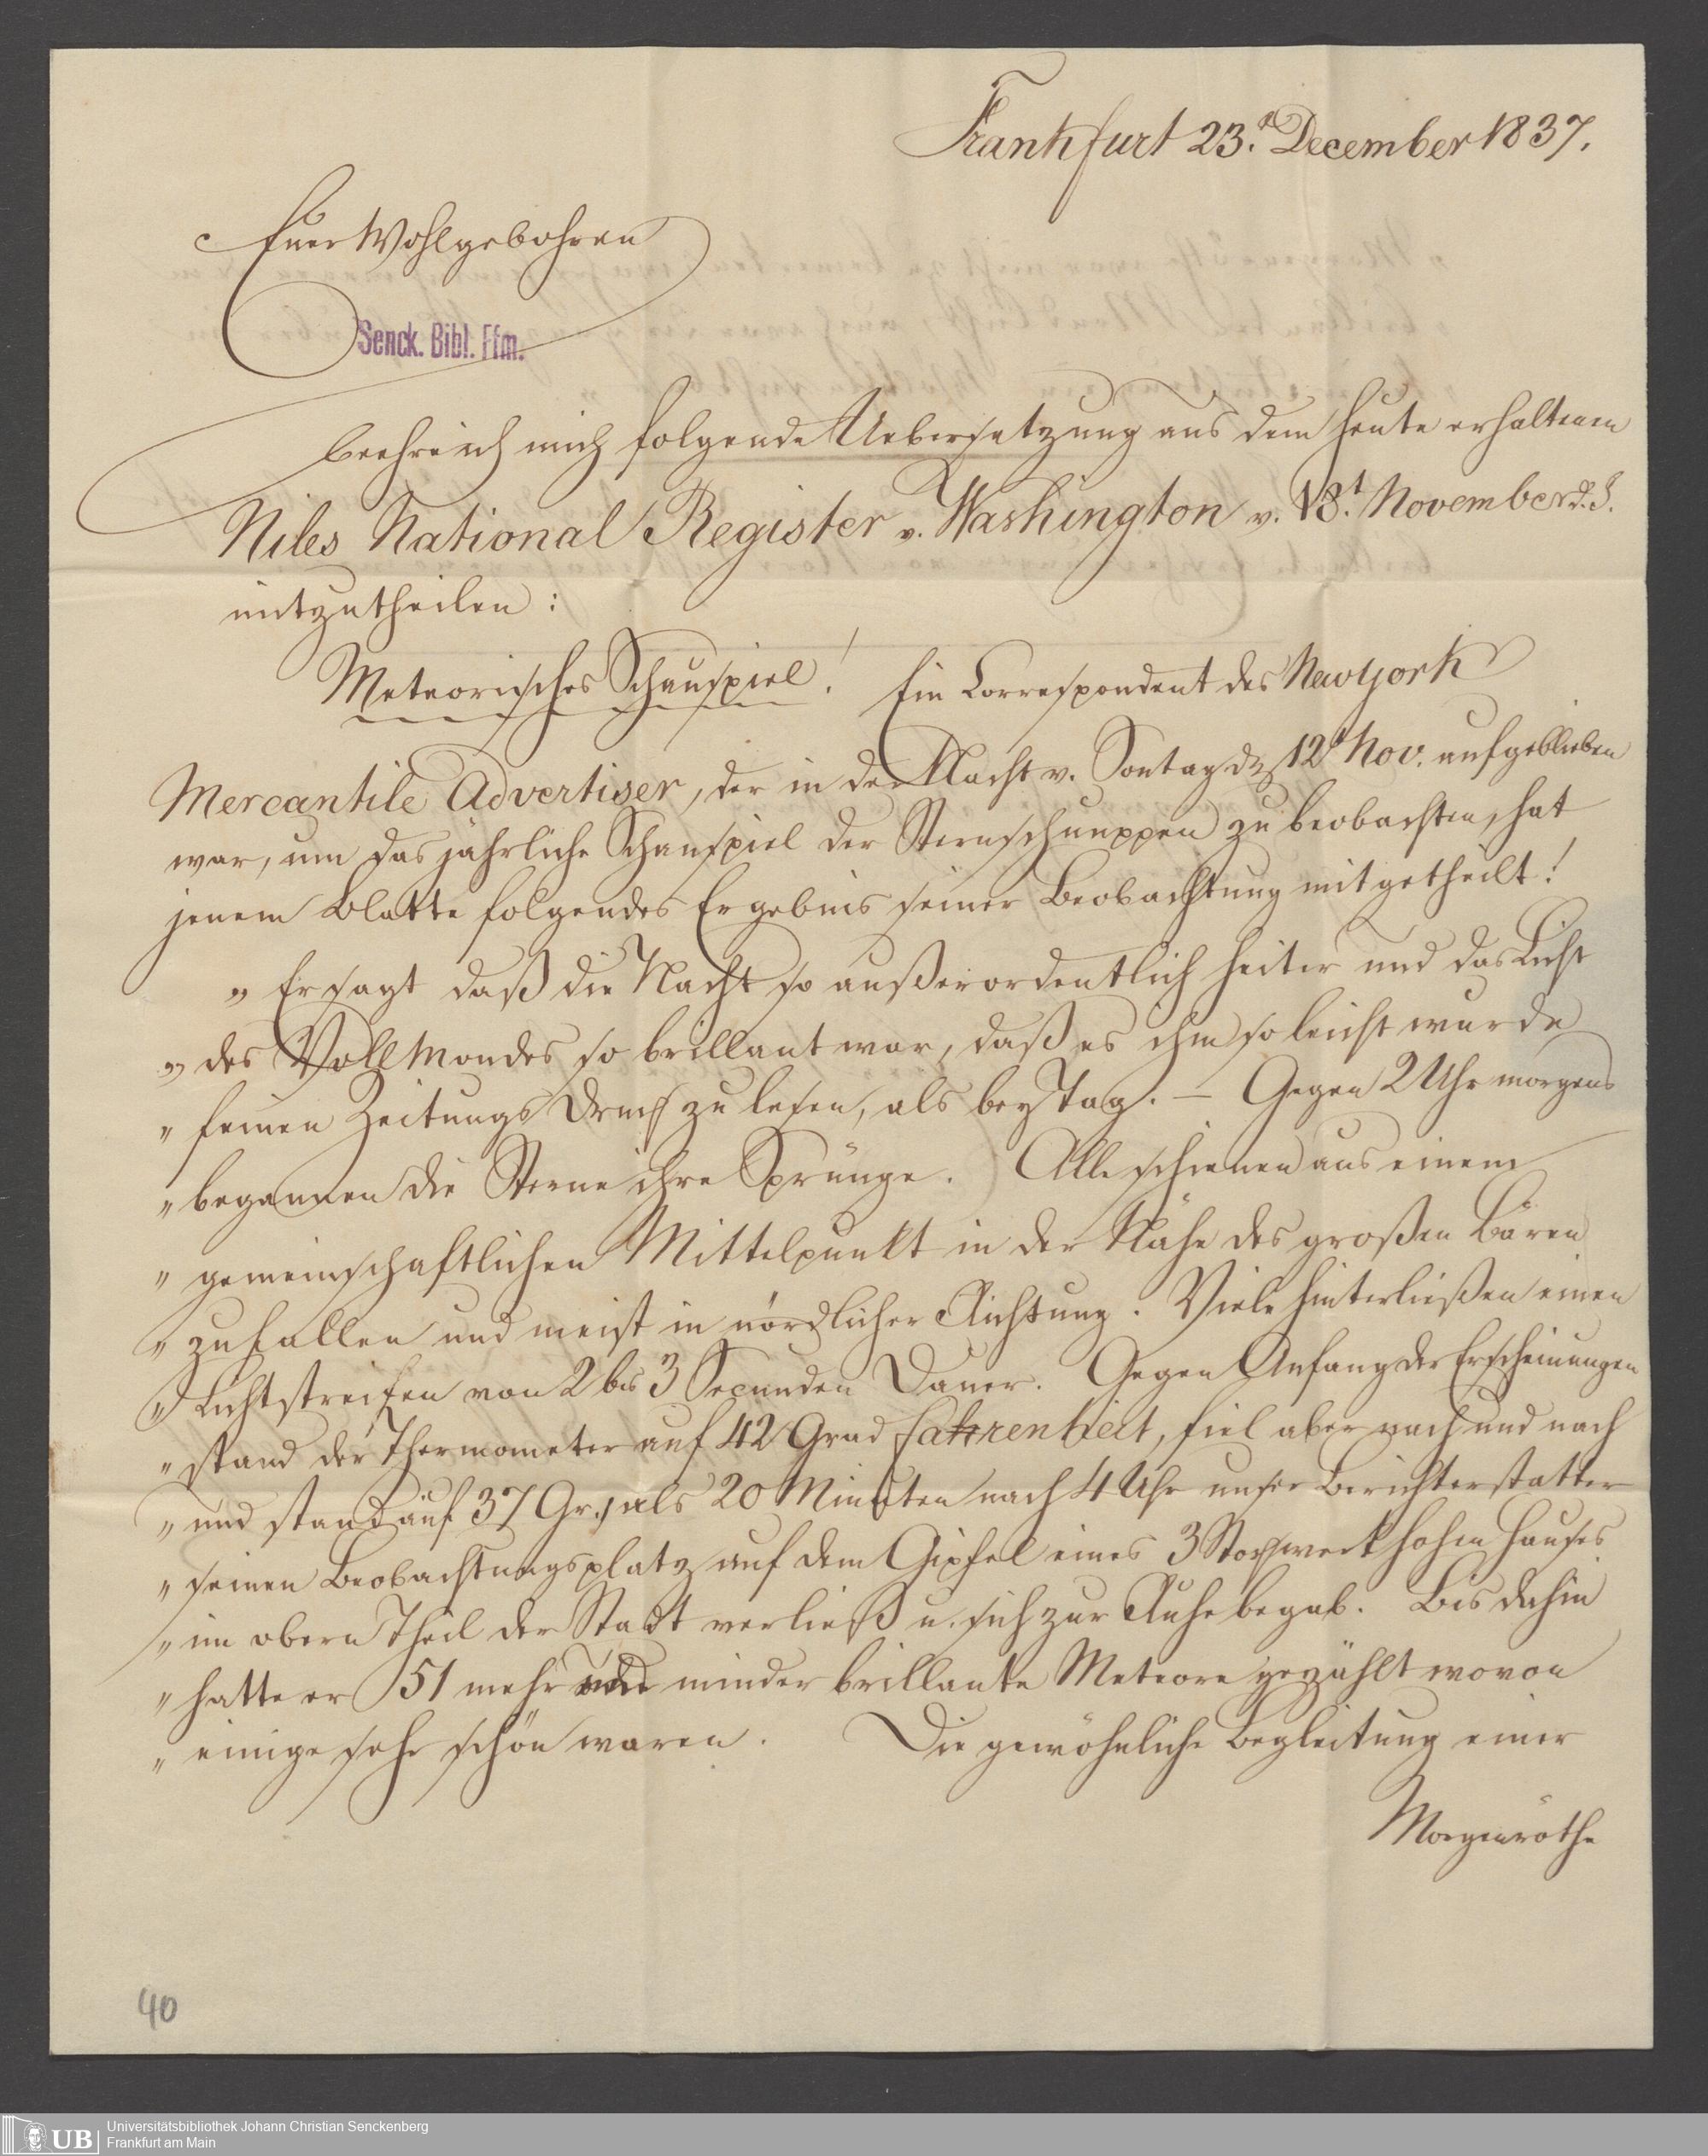 Frankfurt 23.d December 1837.
Euer Wohlgebohren
Senck. Bibl. Ffm.
beehre ich mich folgende Uebersetzung aus dem heute erhaltenen
Niles National Register v. Washington v. 18.t November d. J.
mitzutheilen:
Meteorisches Schauspiel! Ein Correspondent des Newyork
Mercantile Advertiser, der in der Nacht v. Sontag dz 12t Nov. aufgeblieben
war, um das jährliche Schauspiel der Sternschnuppen zu beobachten, hat
jenem Blatte folgendes Ergebnis seiner Beobachtung mitgetheilt!
„ Er sagt daß die Nacht so außerordentlich heiter und das Licht
„ des Vollmondes so brillant war, daß es ihm so leicht wurde
„ feinen Zeitungs Druck zu lesen, als bey Tag. – Gegen 2 Uhr morgens
„ begannen die Sterne ihre Sprünge. Alle schienen aus einem
„ gemeinschaftlichen Mittelpunkt in der Nähe des großen Bären
„ zu fallen und meist in nördlicher Richtung. Viele hinterließen einen
„ Lichtstreifen von 2 bis 3 Secunden Dauer. Gegen Anfang der Erscheinungen
„ stand der Thermometer auf 42 Grad Fahrenheit, fiel aber nach und nach
„ und stand auf 37 Gr., als 20 Minuten nach 4 Uhr unser Berichterstatter
„ seinen Beobachtungsplatz auf dem Gipfel eines 3 Stockwerk hohen Hauses
„ im obern Theil der Stadt verließ u. sich zur Ruhe begab. Bis dahin
„ hatte er 51 mehr oder minder brillante Meteore gezählt wovon
„ einige sehr schön waren. Die gewöhnliche Begleitung einer
Morgenröthe
40
UB
Universitätsbibliothek Johann Christian Senckenberg
Frankfurt am Main